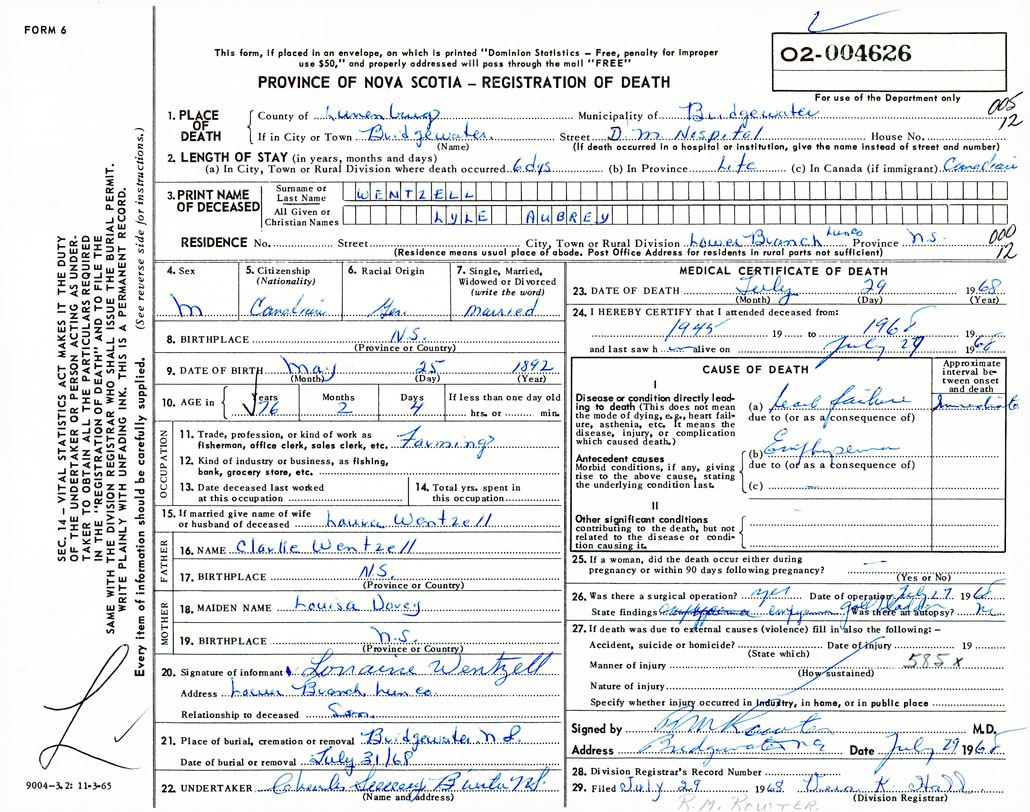 FORM 6
This form, if placed in an envelope, on which is printed "Dominion Statistics – Free, penalty for improper
use $50," and properly addressed will pass through the mail "FREE"
PROVINCE OF NOVA SCOTIA – REGISTRATION OF DEATH
02-004626
For use of the Department only
005
12
1. PLACE OF DEATH
County of Lunenburg Municipality of Bridgewater
If in City or Town Bridgewater. Street D. M. Hospital House No.
(Name) (If death occurred in a hospital or institution, give the name instead of street and number)
2. LENGTH OF STAY (in years, months and days)
(a) In City, Town or Rural Division where death occurred 6 dys (b) In Province Life (c) In Canada (if immigrant) Canadian
3. PRINT NAME OF DECEASED
Surname or Last Name WENTZELL
All Given or Christian Names LYLE AUBREY
RESIDENCE No. Street City, Town or Rural Division Lower Branch Lun Co Province N.S.
(Residence means usual place of abode. Post Office Address for residents in rural parts not sufficient)
000
12
4. Sex
M
5. Citizenship
(Nationality)
Canadian
6. Racial Origin
Ger.
7. Single, Married,
Widowed or Divorced
(write the word)
Married
8. BIRTHPLACE N.S.
(Province or Country)
9. DATE OF BIRTH May 25 1892
(Month) (Day) (Year)
10. AGE in Years Months Days If less than one day old
76 2 4 hrs. or min.
OCCUPATION
11. Trade, profession, or kind of work as
fisherman, office clerk, sales clerk, etc. Farming
12. Kind of industry or business, as fishing,
bank, grocery store, etc.
13. Date deceased last worked
at this occupation
14. Total yrs. spent in
this occupation
15. If married give name of wife
or husband of deceased Laura Wentzell
FATHER
16. NAME Clarke Wentzell
17. BIRTHPLACE N.S.
(Province or Country)
MOTHER
18. MAIDEN NAME Louisa Dorey
19. BIRTHPLACE N.S.
(Province or Country)
20. Signature of informant Lorraine Wentzell
Address Lower Branch Lun Co.
Relationship to deceased Son.
21. Place of burial, cremation or removal Bridgewater N S.
Date of burial or removal July 31/68
22. UNDERTAKER Charles B'water N.S.
(Name and address)
MEDICAL CERTIFICATE OF DEATH
23. DATE OF DEATH July 29 1968
(Month) (Day) (Year)
24. I HEREBY CERTIFY that I attended deceased from:
1945 19 to 1968 19
and last saw h im alive on July 29 1968
CAUSE OF DEATH
Approximate
interval be-
tween onset
and death
I
Disease or condition directly lead-
ing to death (This does not mean
the mode of dying, e.g., heart fail-
ure, asthenia, etc. It means the
disease, injury, or complication
which caused death.)
(a) heart failure Immediate
due to (or as a consequence of)
Antecedent causes
Morbid conditions, if any, giving
rise to the above cause, stating
the underlying condition last.
(b) Emphysema
due to (or as a consequence of)
(c)
II
Other significant conditions
contributing to the death, but not
related to the disease or condi-
tion causing it.
25. If a woman, did the death occur either during
pregnancy or within 90 days following pregnancy?
(Yes or No)
26. Was there a surgical operation? yes Date of operation July 27 1968
State findings gall bladder Was there an autopsy? No
27. If death was due to external causes (violence) fill in also the following: –
Accident, suicide or homicide? Date of injury 19
(State which)
Manner of injury 585 x
(How sustained)
Nature of injury
Specify whether injury occurred in industry, in home, or in public place
Signed by R M Kowter M.D.
Address Bridgewater Date July 29 1968
28. Division Registrar's Record Number
29. Filed July 29 1968 K. Hall
(Division Registrar)
R. M. KOWTER.
SEC. 14 – VITAL STATISTICS ACT MAKES IT THE DUTY
OF THE UNDERTAKER OR PERSON ACTING AS UNDER-
TAKER TO OBTAIN ALL THE PARTICULARS REQUIRED
IN THE "REGISTRATION OF DEATH" AND TO FILE THE
SAME WITH THE DIVISION REGISTRAR WHO SHALL ISSUE THE BURIAL PERMIT.
WRITE PLAINLY WITH UNFADING INK. THIS IS A PERMANENT RECORD.
Every item of information should be carefully supplied. (See reverse side for instructions.)
9004-3.2: 11-3-65